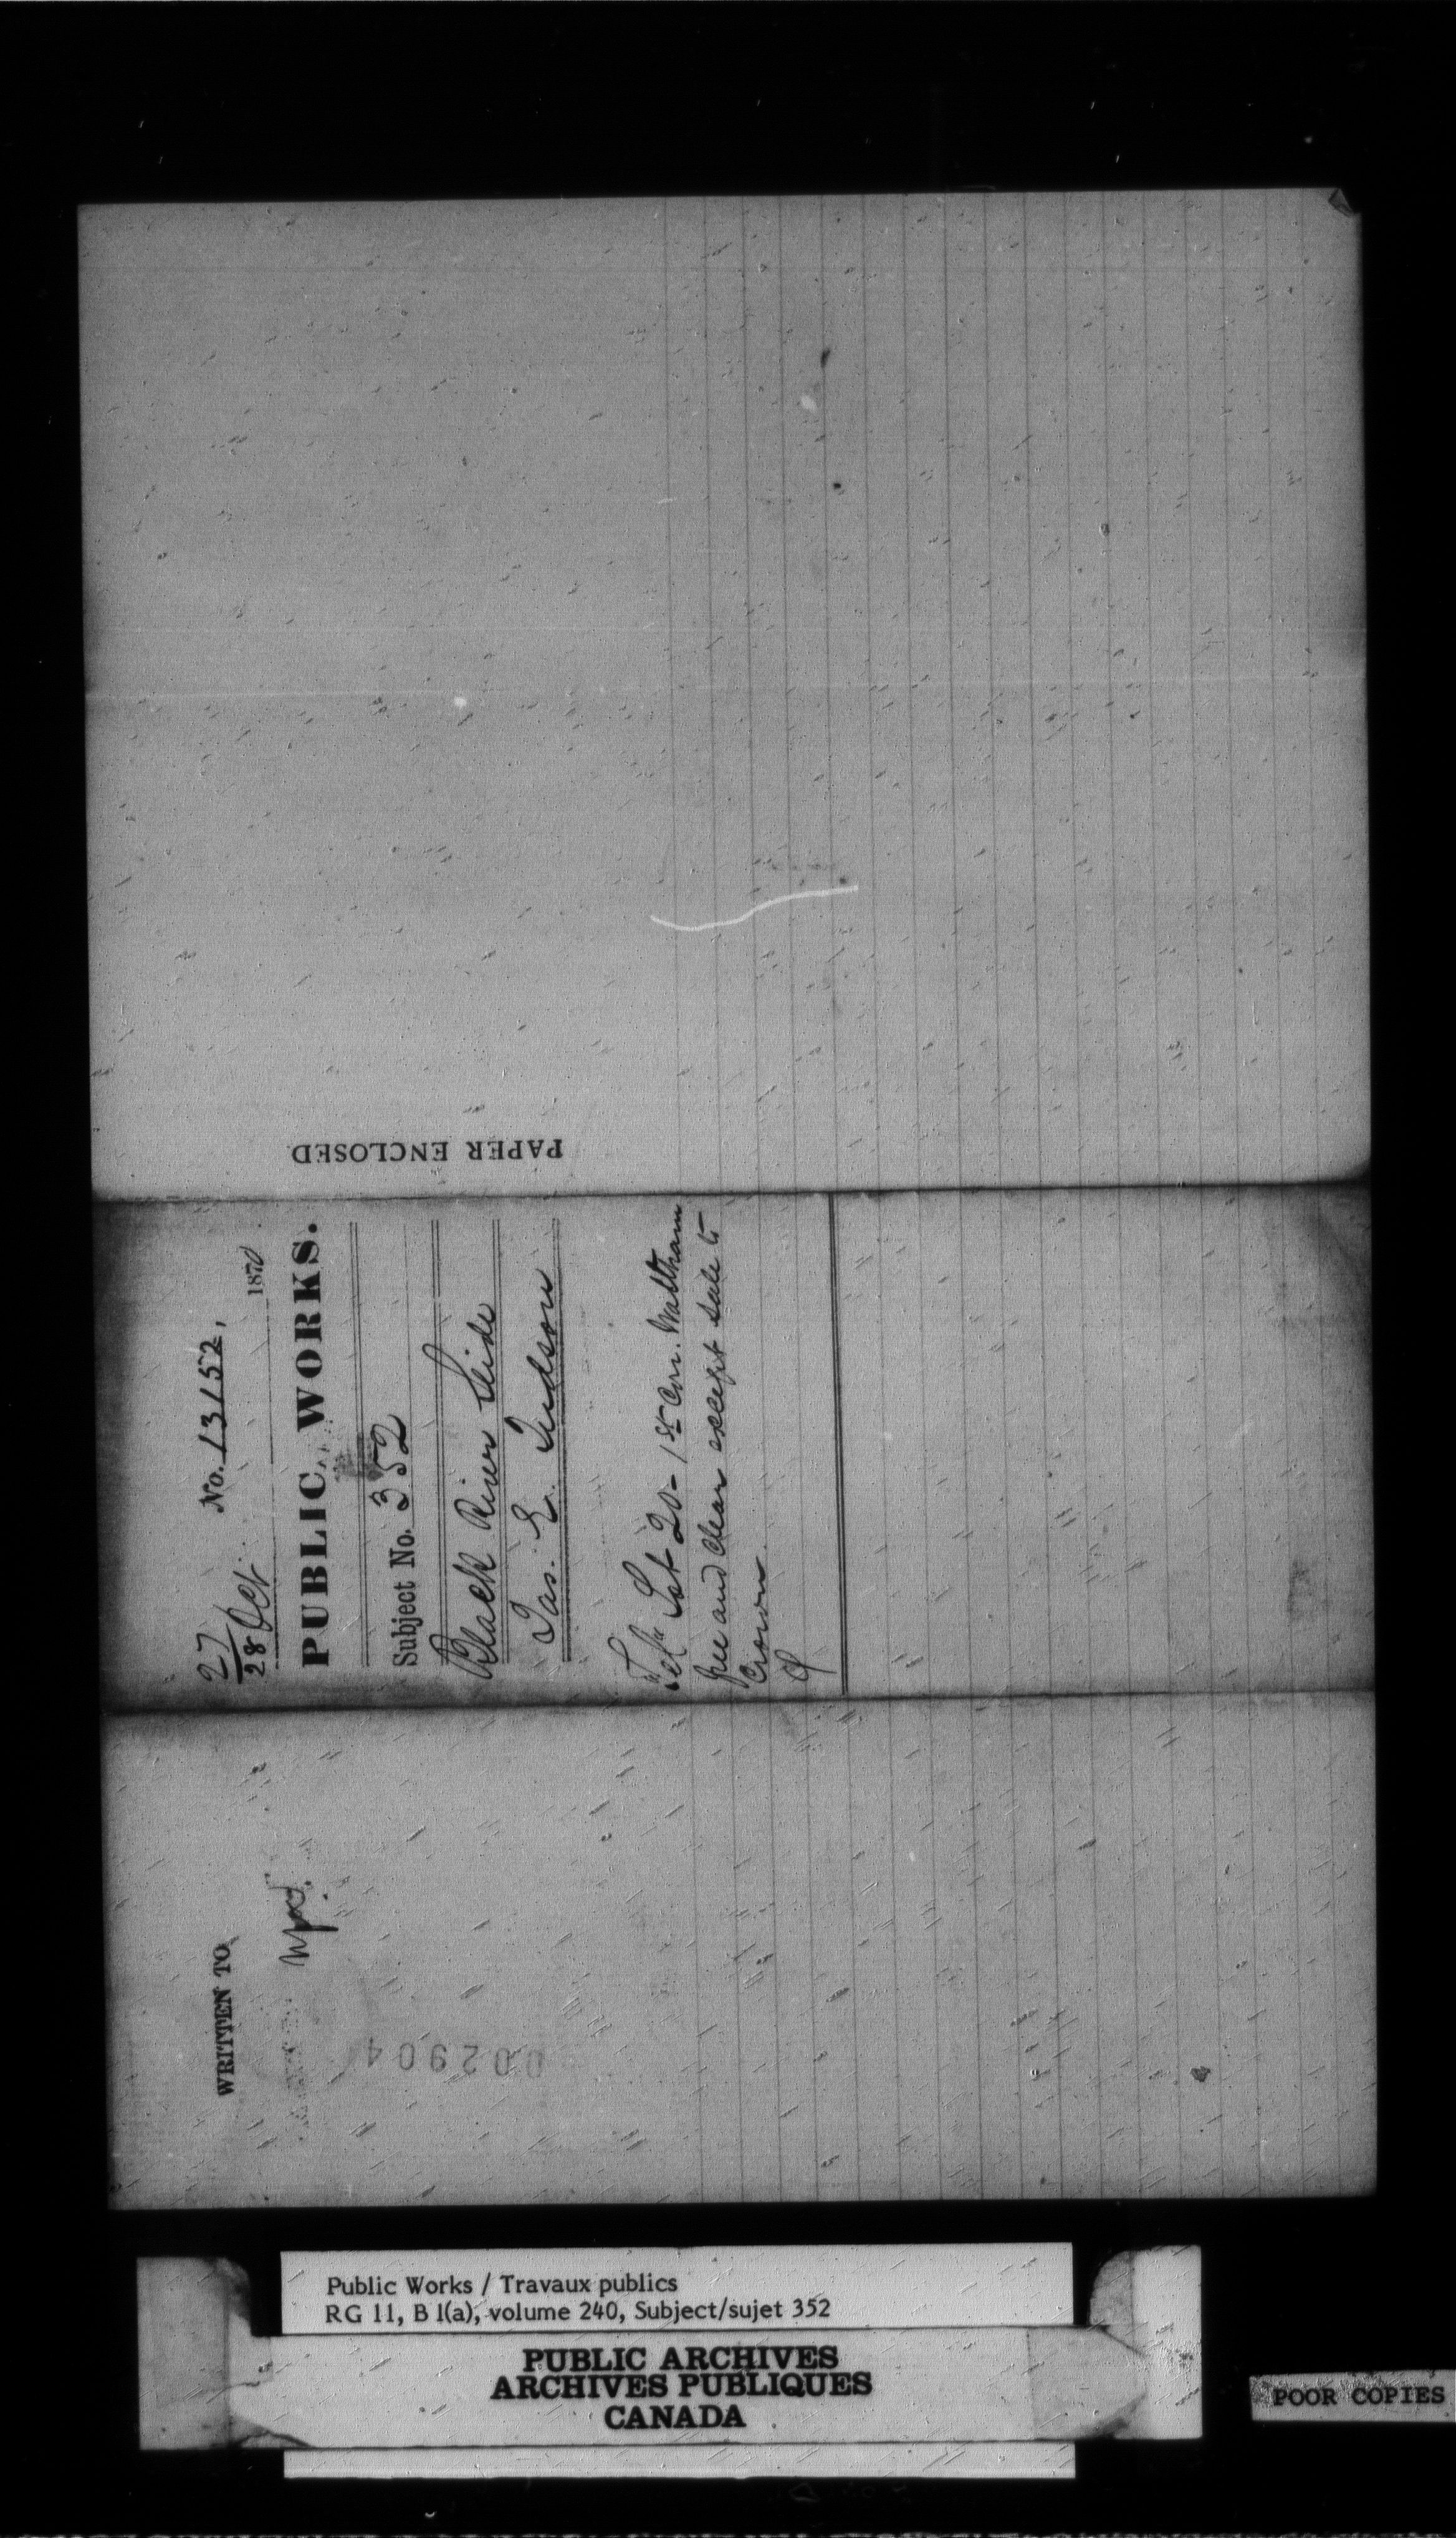 PAPER ENCLOSED
27/28 Oct No. 13152, 1870
PUBLIC WORKS.
Subject No. 352
Black River Slide
Jas. E. Judson
"Tel" Lot 20 - 1st Con. Waltham
free and clear except sale to
Crown.
WRITTEN TO
002904
Public Works / Travaux publics
RG 11, B 1(a), volume 240, Subject/sujet 352
PUBLIC ARCHIVES
ARCHIVES PUBLIQUES
CANADA
POOR COPIES